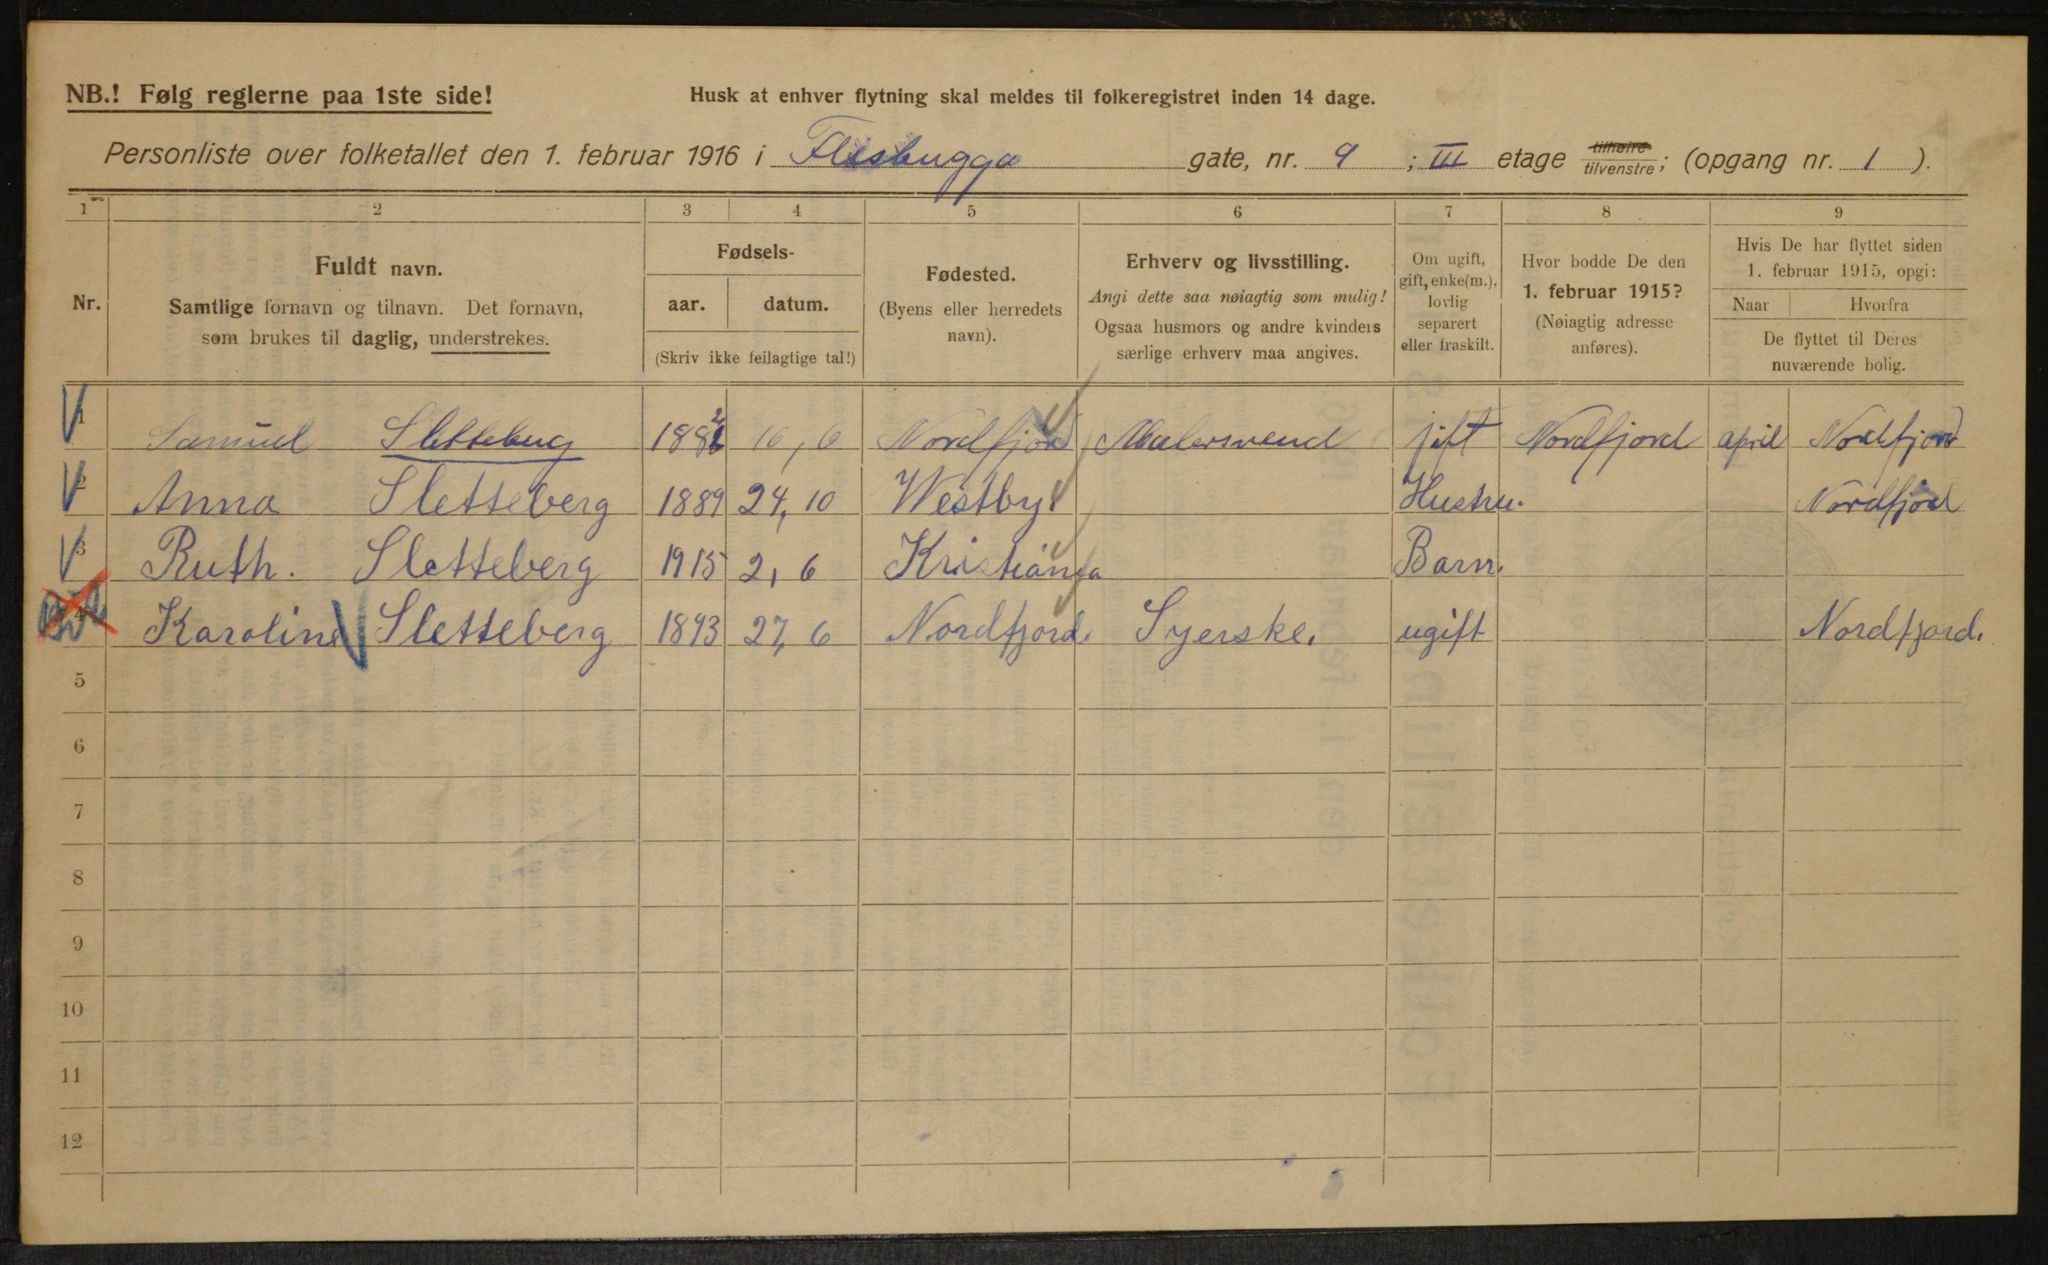 NB.! Følg reglerne paa 1ste side!
Husk at enhver flytning skal meldes til folkeregistret inden 14 dage.
Personliste over folketallet den 1. februar 1916 i Flesbugga gate, nr. 9 ; III etage tilhøire tilvenstre; (opgang nr. 1 ).
1 2 3 4 5 6 7 8 9
Nr.
Fuldt navn.
Samtlige fornavn og tilnavn. Det fornavn,
som brukes til daglig, understrekes.
Fødsels-
aar. datum.
(Skriv ikke feilagtige tal!)
Fødested.
(Byens eller herredets
navn).
Erhverv og livsstilling.
Angi dette saa nøiagtig som mulig!
Ogsaa husmors og andre kvinders
særlige erhverv maa angives.
Om ugift,
gift, enke(m.),
lovlig
separert
eller fraskilt.
Hvor bodde De den
1. februar 1915?
(Nøiagtig adresse
anføres).
Hvis De har flyttet siden
1. februar 1915, opgi:
Naar Hvorfra
De flyttet til Deres
nuværende bolig.
1 Samuel Sletteberg 1882 16, 6 Nordfjord Malersvend jift Nordfjord april Nordfjord
2 Anna Sletteberg 1889 24, 10 Westby Hustru. Nordfjord
3 Ruth. Sletteberg 1915 2, 6 Kristiania Barn.
4 Karoline Sletteberg 1893 27, 6 Nordfjord. Syerske. ugift Nordfjord.
5
6
7
8
9
10
11
12